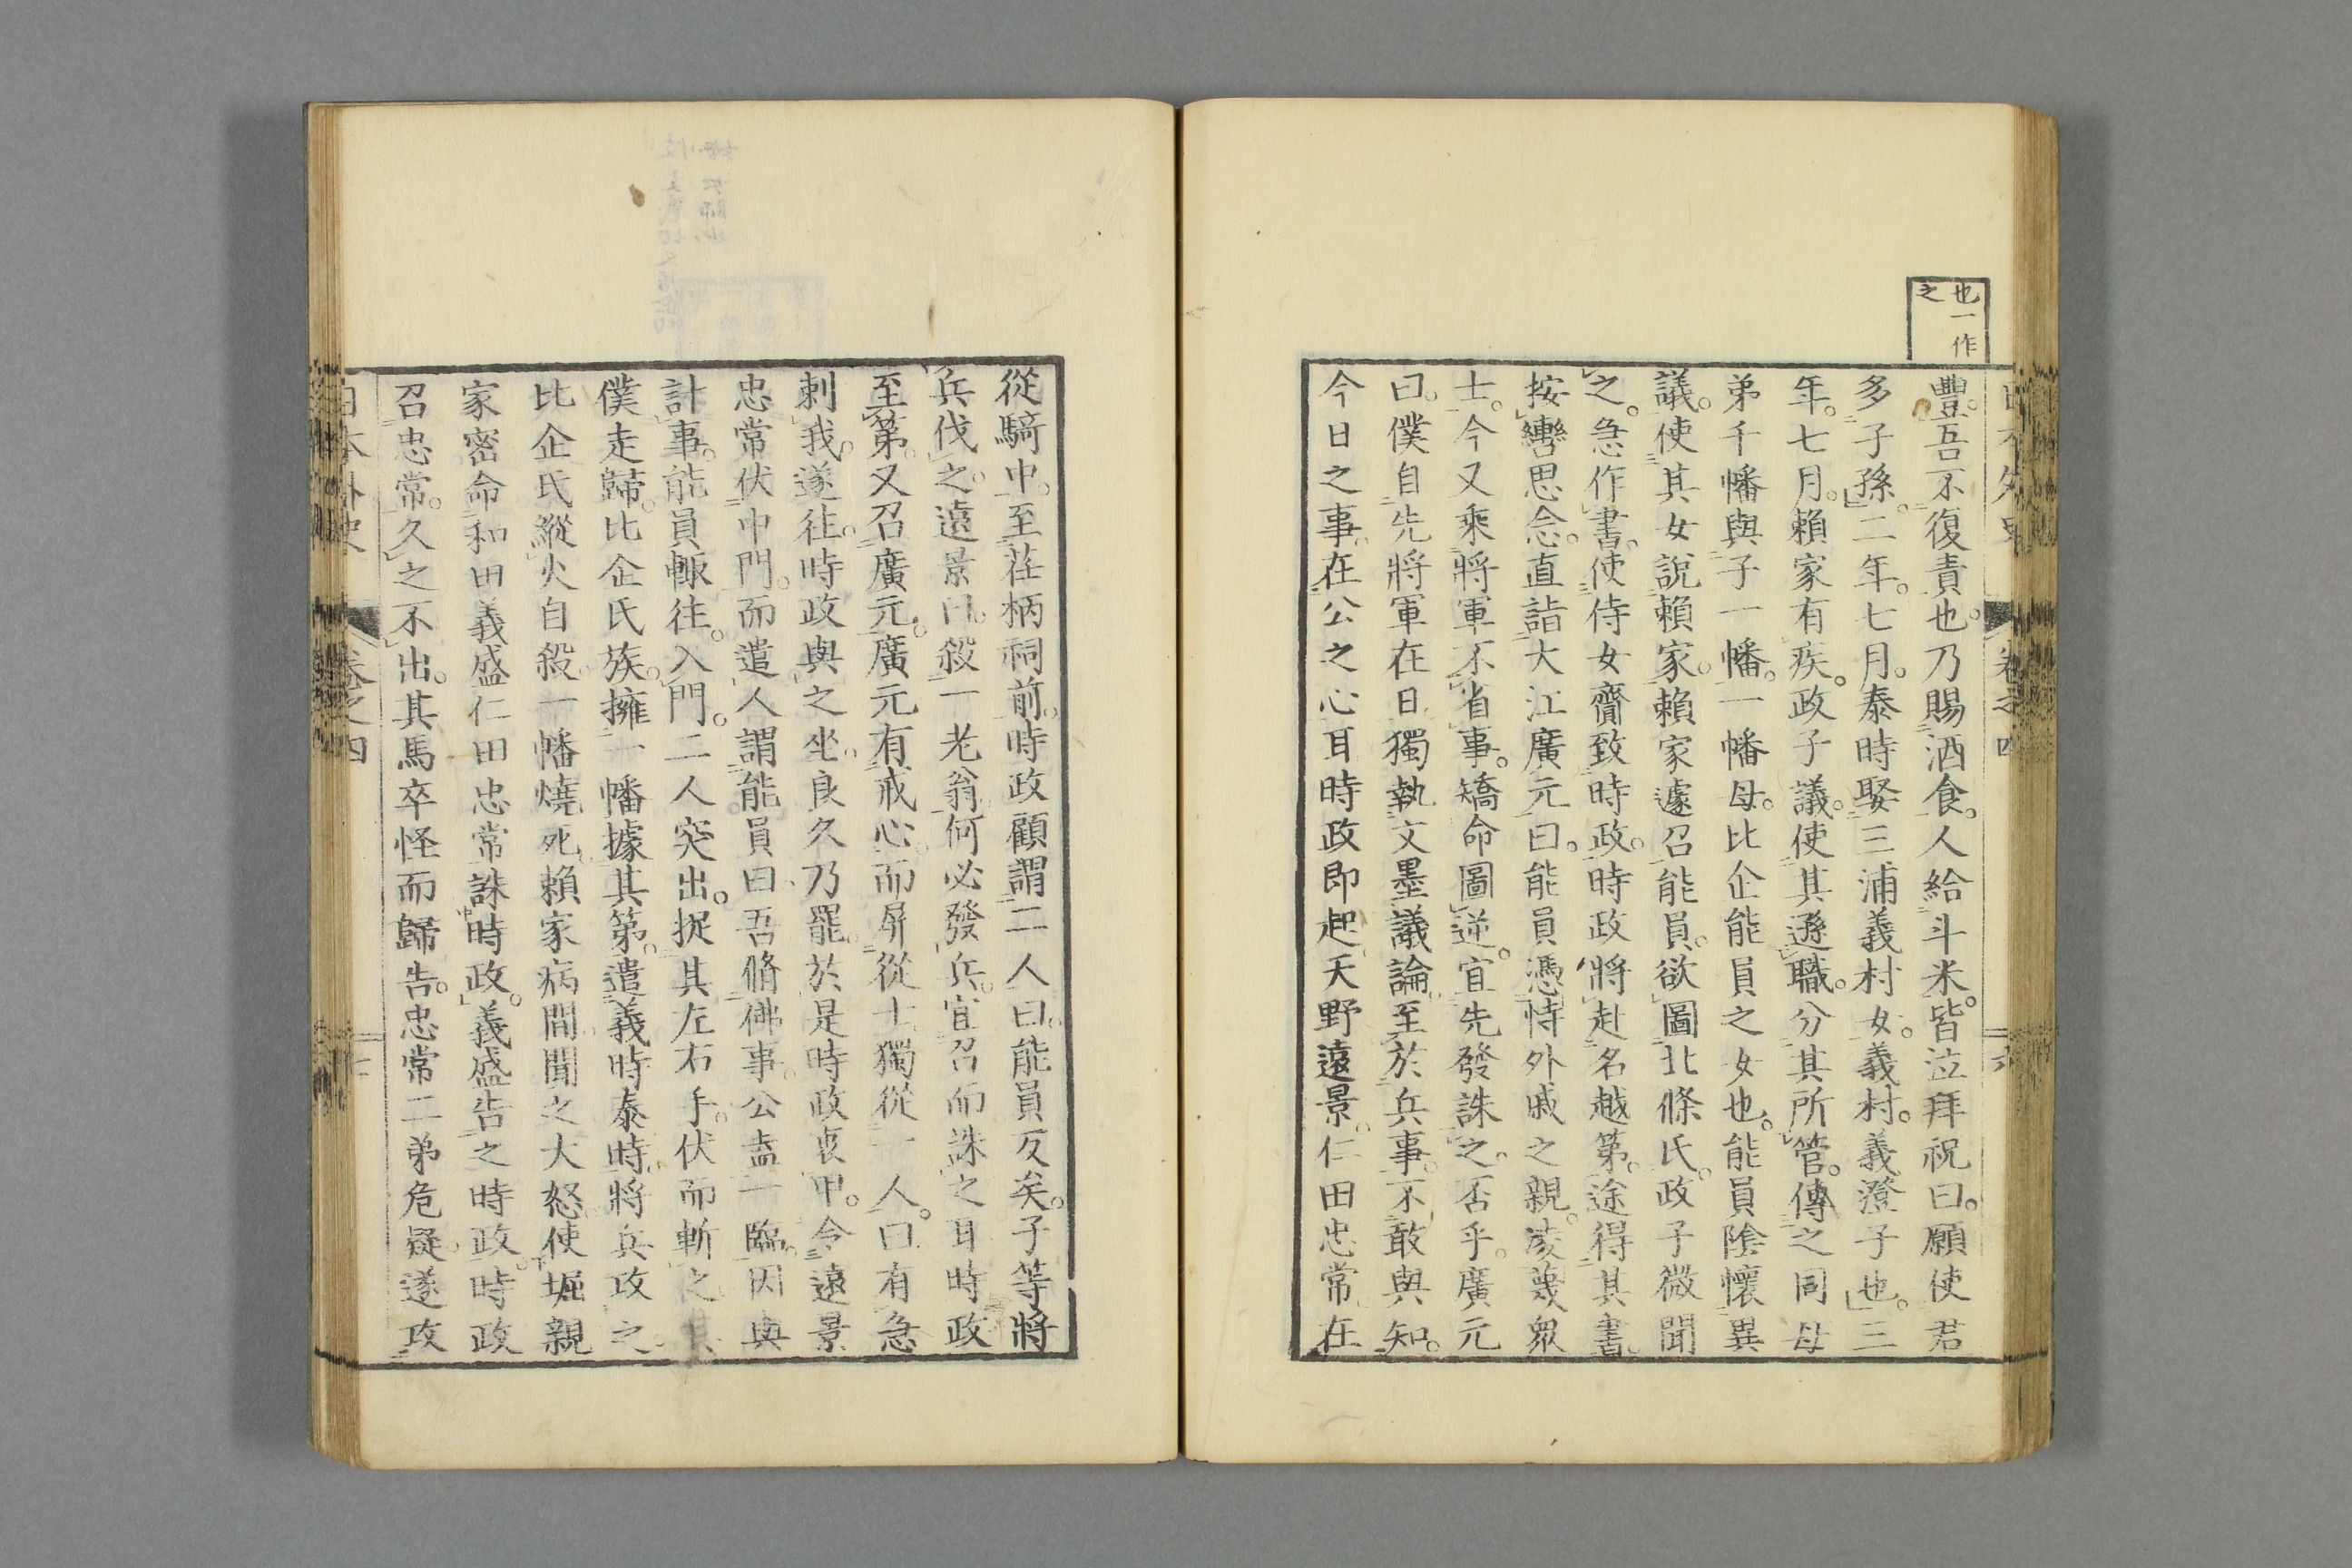 也一作
之
豊。吾不復責也。乃賜酒食。人給斗米。皆泣拜祝曰。願使君
多子孫。二年。七月。泰時娶三浦義村女。義村。義澄子也。三
年。七月。賴家有疾。政子議。使其遜職。分其所管。傳之同母
弟千幡與子一幡。一幡母。比企能員之女也。能員陰懷異
議。使其女說賴家。賴家遽召能員。欲圖北條氏。政子微聞
之。急作書。使侍女齎致時政。時政將赴名越第。途得其書。
按轡思念。直詣大江廣元曰。能員憑恃外戚之親。凌蔑衆
士。今又乘將軍不省事。矯命圖逆。宜先發誅之。否乎。廣元
曰。僕自先將軍在日。獨執文墨議論。至於兵事。不敢與知。
今日之事。在公之心耳。時政即起。天野遠景。仁田忠常在
從騎中。至荏柄祠前。時政顧謂二人曰。能員反矣。子等將
兵伐之。遠景曰。殺一老翁。何必發兵。宜召而誅之耳。時政
至第。又召廣元。廣元有戒心。而屏從士。獨從一人。曰。有急
刺我。遂往。時政與之坐。良久乃罷。於是時政衷甲。令遠景
忠常伏中門。而遣人謂能員曰。吾脩佛事。公盍一臨。因與
計事。能員輙往。入門。二人突出。捉其左右手。伏而斬之。其
僕走歸。比企氏族。擁一幡據其第。遣義時泰時。將兵攻之。
比企氏縱火自殺。一幡燒死。賴家病間。聞之大怒。使堀親
家密命和田義盛仁田忠常誅時政。義盛告之時政。時政
召忠常。久之不出。其馬卒怪而歸告。忠常二弟危疑。遂攻
日本外史
卷之四